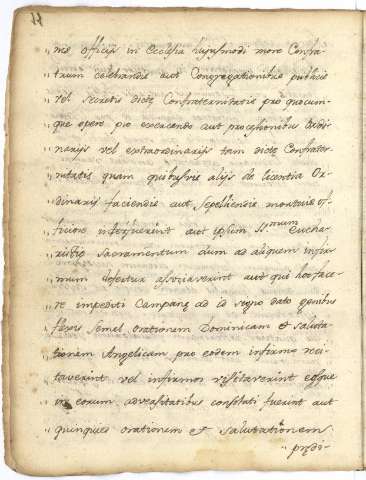 „ nis officijs in Ecclesia hujusmodi more Confra-
„ trum celebrandis aut Congregationibus publicis
„ vel secretis dictę Confraternitatis pro quocum-
„ que opere pio exercendo aut processionibus Ordi-
„ narijs vel extraordinarijs tam dictę Confrater-
„ nitatis quam quibusvis alijs de licentia Or-
„ dinarij faciendis aut sepelliendis mortuis of-
„ ficiose interfuerint aut ipsum SSmum eucha-
„ ristię Sacramentum dum ad aliquem infir-
„ mum defertur associaverint aut qui hoc face-
„ re impediti Campanę ad id signo dato genibus
„ flexis semel orationem Dominicam et saluta-
„ tionem Angelicam pro eodem infirmo reci-
„ taverint vel infirmos visitaverint eosque
„ in eorum adversitatibus consolati fuerint aut
„ quinquies orationem et salutationem
„ prędi-